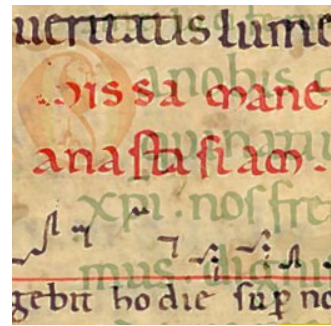 ueritatis lume
a nobis
missa mane
anaſtaſiam.
xpi. noſtre
mus. dig
gebit hodie ſup no